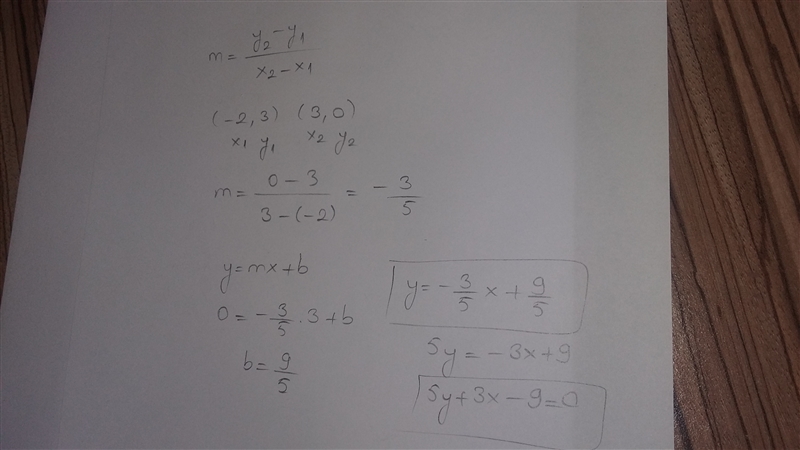 m = y₂ - y₁ / x₂ - x₁
(-2, 3) (3, 0)
x₁ y₁ x₂ y₂
m = 0 - 3 / 3 - (-2) = - 3/5
y = mx + b
0 = - 3/5 . 3 + b
b = 9/5
y = - 3/5 x + 9/5
5y = - 3x + 9
5y + 3x - 9 = 0